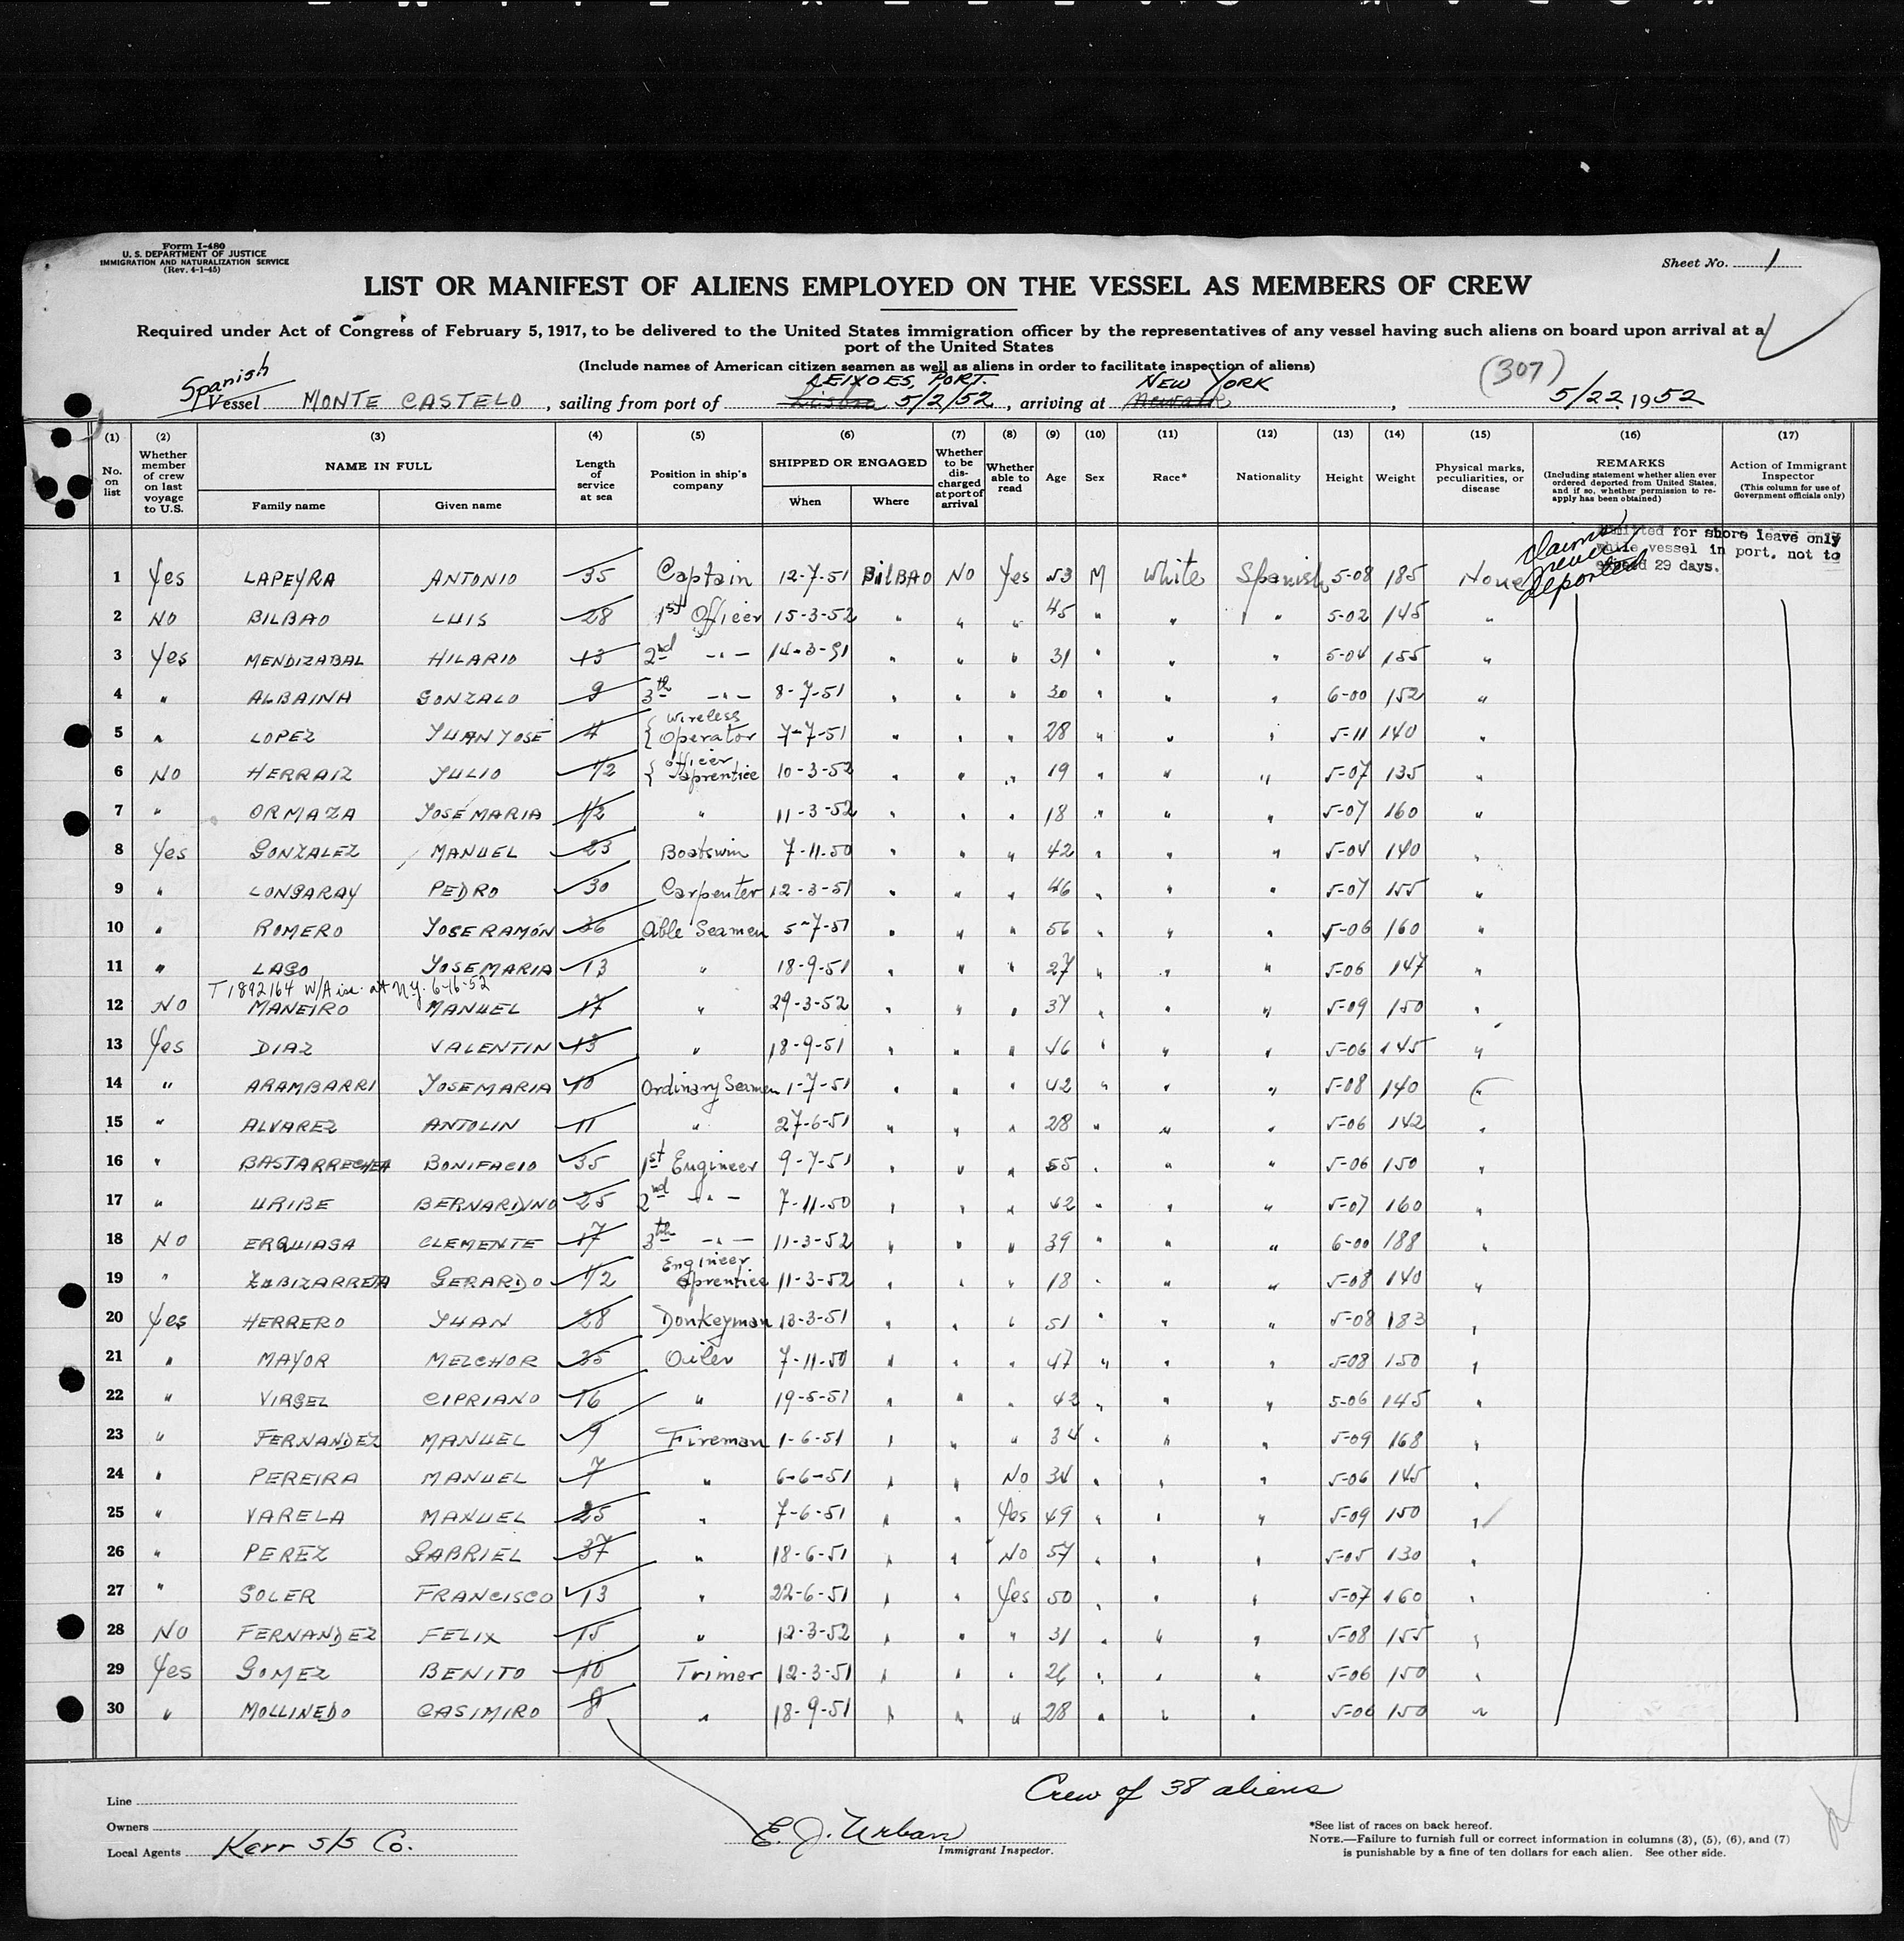 Form I-480
U. S. DEPARTMENT OF JUSTICE
IMMIGRATION AND NATURALIZATION SERVICE
(Rev. 4-1-45)
Sheet No. 1
LIST OR MANIFEST OF ALIENS EMPLOYED ON THE VESSEL AS MEMBERS OF CREW
Required under Act of Congress of February 5, 1917, to be delivered to the United States immigration officer by the representatives of any vessel having such aliens on board upon arrival at a
port of the United States
(Include names of American citizen seamen as well as aliens in order to facilitate inspection of aliens)
(307)
Spanish LEIXOES, PORT. NEW YORK
Vessel MONTE CASTELO, sailing from port of Lisbon 5/2/52, arriving at Newark, 5/22 1952
(1) (2) (3) (4) (5) (6) (7) (8) (9) (10) (11) (12) (13) (14) (15) (16) (17)
No. on list
Whether member of crew on last voyage to U.S.
NAME IN FULL
Family name
Given name
Length of service at sea
Position in ship's company
SHIPPED OR ENGAGED
When
Where
Whether to be discharged at port of arrival
Whether able to read
Age
Sex
Race*
Nationality
Height
Weight
Physical marks, peculiarities, or disease
REMARKS
(Including statement whether alien ever ordered deported from United States, and if so, whether permission to reapply has been obtained)
Action of Immigrant Inspector
(This column for use of Government officials only)
Admitted for shore leave only
while vessel in port, not to
exceed 29 days.
Claims never deported
1 Yes LAPEYRA ANTONIO 35 Captain 12-7-51 BilBAO NO Yes 53 M White Spanish 5-08 185 None
2 NO BILBAO LUIS 28 1st Officer 15-3-52 " " " 45 " " " 5-02 145 "
3 Yes MENDIZABAL HILARIO 13 2nd -"- 14-3-51 " " " 31 " " " 5-04 155 "
4 " ALBAINA GONZALO 9 3th -"- 8-7-51 " " " 30 " " " 6-00 152 "
5 " LOPEZ YUAN YOSE 4 { Wireless Operator 7-7-51 " " " 28 " " " 5-11 140 "
6 NO HERRAIZ YULIO 1/2 { officer aprentice 10-3-52 " " " 19 " " " 5-07 135 "
7 " ORMAZA YOSE MARIA 1/2 " 11-3-52 " " " 18 " " " 5-07 160 "
8 Yes GONZALEZ MANUEL 23 Boatswin 7-11-50 " " " 42 " " " 5-04 140 "
9 " LONGARAY PEDRO 30 Carpenter 12-3-51 " " " 46 " " " 5-07 155 "
10 " ROMERO YOSE RAMÓN 36 Able Seamen 5-7-51 " " " 56 " " " 5-06 160 "
11 " LAGO YOSE MARIA 13 " 18-9-51 " " " 27 " " " 5-06 147 "
T1892164 W/A iss. at N.Y. 6-16-52
12 NO MANEIRO MANUEL 17 " 29-3-52 " " " 37 " " " 5-09 150 "
13 Yes DIAZ VALENTIN 13 " 18-9-51 " " " 46 " " " 5-06 145 "
14 " ARAMBARRI YOSE MARIA 10 Ordinary Seamen 1-7-51 " " " 42 " " " 5-08 140 "
15 " ALVAREZ ANTOLIN 11 " 27-6-51 " " " 28 " " " 5-06 142 "
16 " BASTARRECHEA BONIFACIO 35 1st Engineer 9-7-51 " " " 55 " " " 5-06 150 "
17 " URIBE BERNARDINO 25 2nd -"- 7-11-50 " " " 42 " " " 5-07 160 "
18 NO ERQUIAGA CLEMENTE 17 3th -"- 11-3-52 " " " 39 " " " 6-00 188 "
19 " ZUBIZARRETA GERARDO 1/2 Engineer aprentice 11-3-52 " " " 18 " " " 5-08 140 "
20 Yes HERRERO YUAN 28 Donkeyman 13-3-51 " " " 51 " " " 5-08 183 "
21 " MAYOR MELCHOR 35 Oiler 7-11-50 " " " 47 " " " 5-08 150 "
22 " VIRGEL CIPRIANO 16 " 19-5-51 " " " 42 " " " 5-06 145 "
23 " FERNANDEZ MANUEL 9 Fireman 1-6-51 " " " 34 " " " 5-09 168 "
24 " PEREIRA MANUEL 7 " 6-6-51 " " NO 34 " " " 5-06 145 "
25 " VARELA MANUEL 25 " 7-6-51 " " Yes 49 " " " 5-09 150 "
26 " PEREZ GABRIEL 37 " 18-6-51 " " NO 57 " " " 5-05 130 "
27 " SOLER FRANCISCO 13 " 22-6-51 " " Yes 50 " " " 5-07 160 "
28 NO FERNANDEZ FELIX 15 " 12-3-52 " " " 31 " " " 5-08 155 "
29 Yes GOMEZ BENITO 10 Trimer 12-3-51 " " " 26 " " " 5-06 150 "
30 " MOLLINEDO CASIMIRO 8 " 18-9-51 " " " 28 " " " 5-06 150 "
Crew of 38 aliens
Line
Owners
Local Agents Kerr S/S Co.
E. J. Urban
Immigrant Inspector.
*See list of races on back hereof.
NOTE.—Failure to furnish full or correct information in columns (3), (5), (6), and (7)
is punishable by a fine of ten dollars for each alien. See other side.